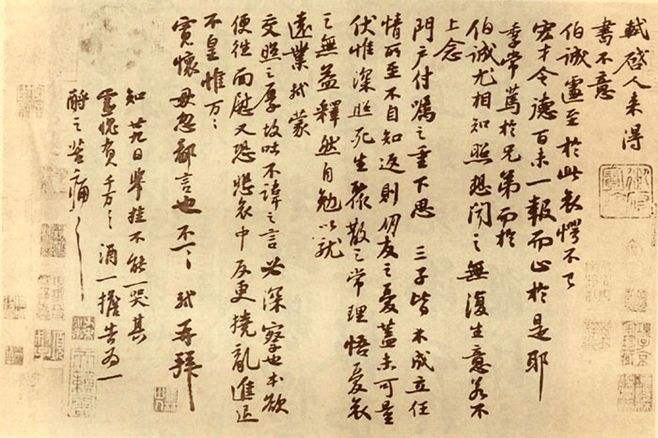 軾啓人來得
書不意
伯誠遽至於此哀愕不已
宏才令德百未一報而止於是耶
季常篤於兄弟而於
伯誠尤相知照想聞之無復生意若不
上念
門戶付囑之重下思三子皆未成立任
情所至不自知返則朋友之憂蓋未可量
伏惟深照死生聚散之常理悟憂哀
之無益釋然自勉以就
遠業軾蒙
交照之厚故吐不諱之言必深察也本欲
便往面慰又恐悲哀中反更撓亂進退
不皇惟万〻
寬懷毋忽鄙言也不一〻軾再拜
知廿九日舉挂不能一哭其
靈愧負千万〻酒一擔告為一
酹之苦痛〻